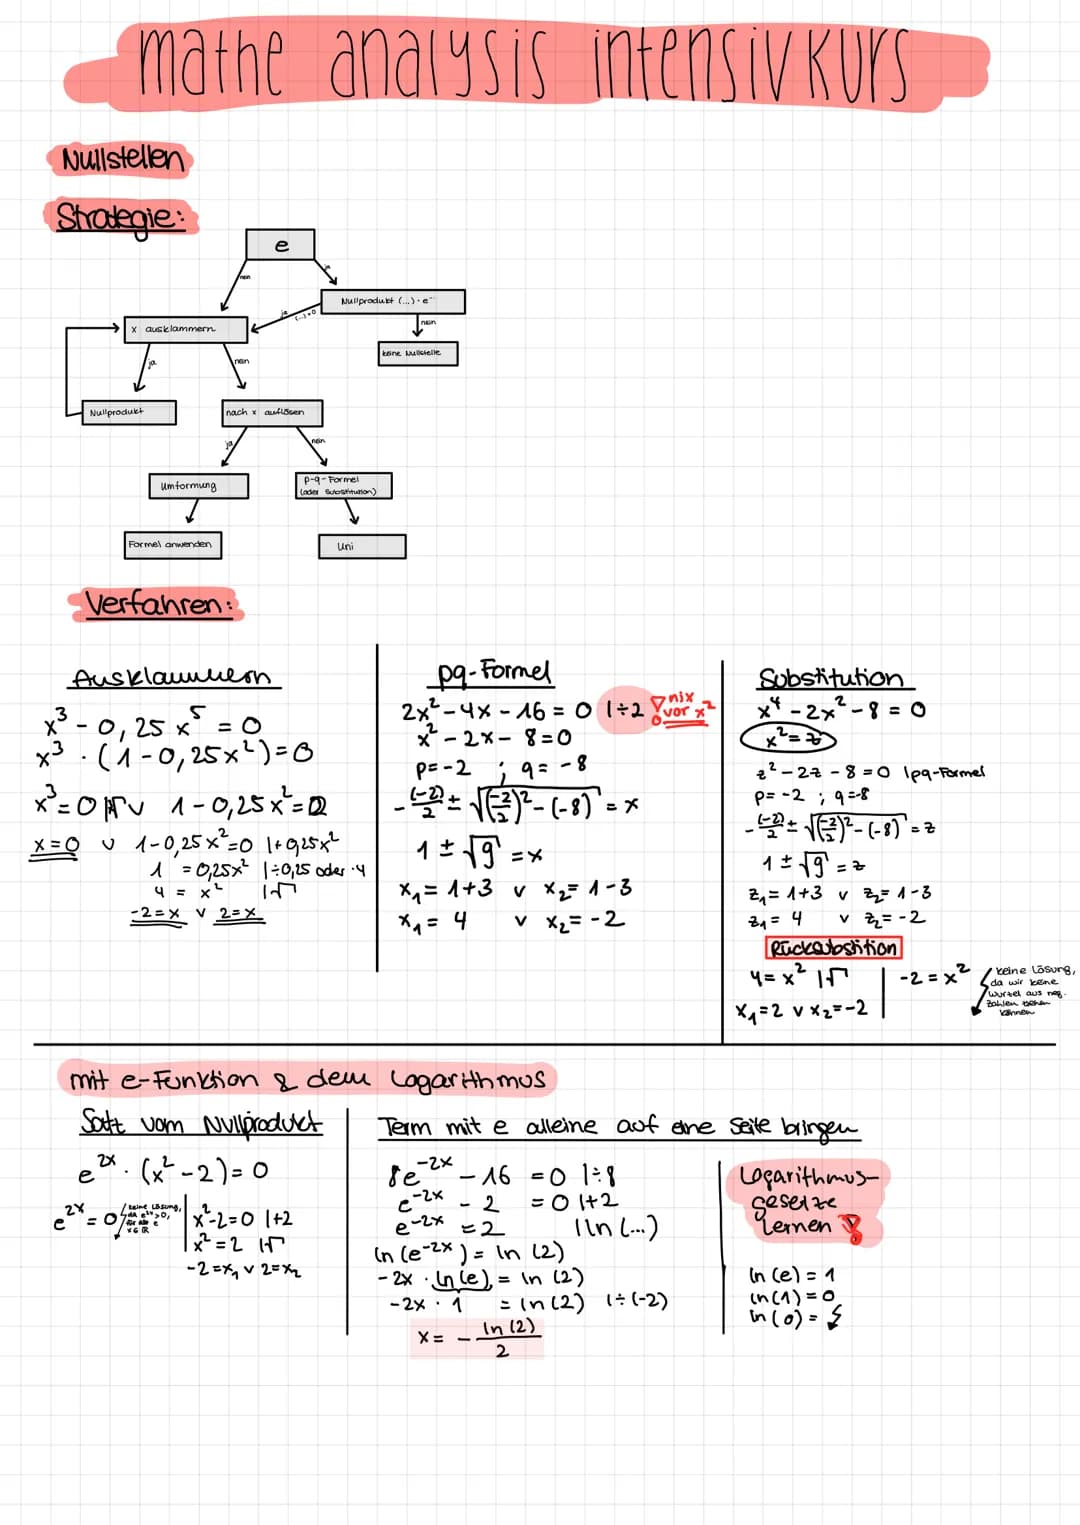 mathe analysis intensivkurs
Nullstellen
Strategie:
e
nein
ja
Nullprodukt (...)·e
ja
(...)=0
nein
x ausklammern
keine Nullstelle
ja
nein
Nullprodukt
nach x auflösen
ja
nein
Umformung
p-q-Formel
(oder Substitution)
Formel anwenden
Uni
Verfahren:
Ausklammern
x³ - 0,25x⁵ = 0
x³ · (1-0,25x²)=0
x³=0 v 1-0,25x²=0
x=0 v 1-0,25x²=0 |+0,25x²
1 = 0,25x² |÷0,25 oder ·4
4 = x² |√
-2=x v 2=x
pq-Formel
2x²-4x-16=0 |÷2 nix
vor x²
x²-2x-8=0
p=-2 ; q=-8
-(-2)/2 ± √((-2/2)²-(-8)) = x
1 ± √9 = x
x₁=1+3 v x₂=1-3
x₁=4 v x₂=-2
Substitution
x⁴-2x²-8=0
x²=z
z²-2z-8=0 |pq-Formel
p=-2 ; q=-8
-(-2)/2 ± √((-2/2)²-(-8)) = z
1 ± √9 = z
z₁=1+3 v z₂=1-3
z₁=4 v z₂=-2
Rücksubstition
4=x² |√
x₁=2 v x₂=-2
-2=x²
keine Lösung,
da wir keine
Wurzel aus neg.
Zahlen ziehen
können
mit e-Funktion & dem Logarithmus
Satz vom Nullprodukt
e²ˣ·(x²-2)=0
e²ˣ=0
keine Lösung,
da e²ˣ>0,
für alle
x∈ℝ
x²-2=0 |+2
x²=2 |√
-2=x₁ v 2=x₂
Term mit e alleine auf eine Seite bringen
8e⁻²ˣ - 16 = 0 |÷8
e⁻²ˣ - 2 = 0 |+2
e⁻²ˣ = 2 |ln(...)
ln(e⁻²ˣ) = ln(2)
-2x · ln(e) = ln(2)
-2x · 1 = ln(2) |÷(-2)
x = - ln(2)/2
Logarithmus-
gesetze
lernen !
ln(e) = 1
ln(1) = 0
ln(0) = ↯